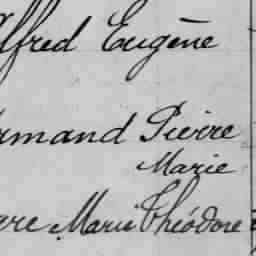 lfred Eugène
rmand Pierre
Marie
re Marie Théodore